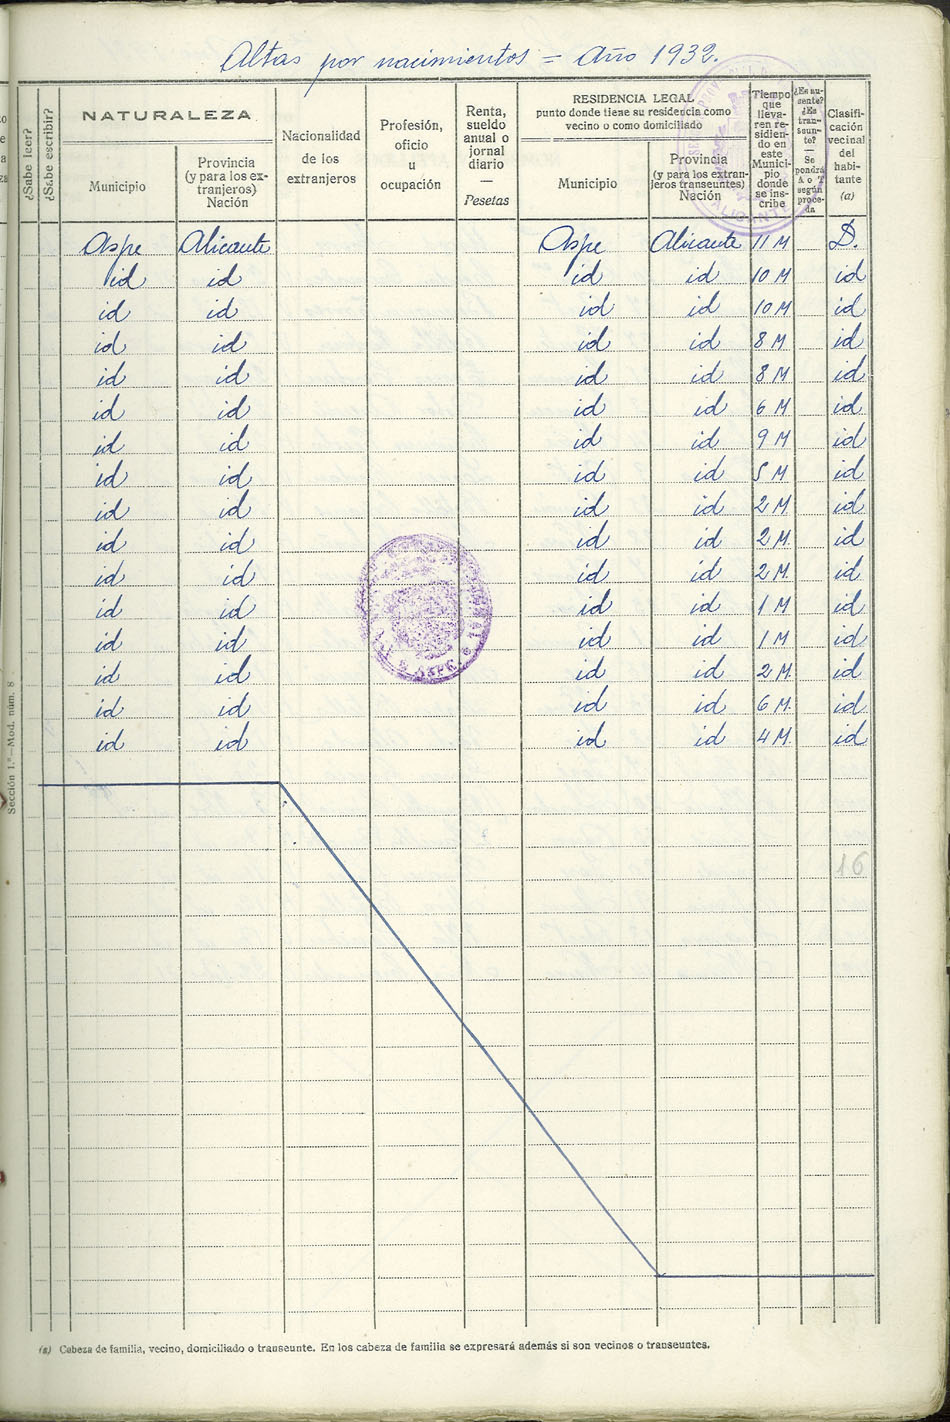 Altas por nacimientos = Año 1932.
¿Sabe leer?
¿Sabe escribir?
NATURALEZA
Municipio
Provincia
(y para los ex-
tranjeros)
Nación
Nacionalidad
de los
extranjeros
Profesión,
oficio
u
ocupación
Renta,
sueldo
anual o
jornal
diario
—
Pesetas
RESIDENCIA LEGAL
punto donde tiene su residencia como
vecino o como domiciliado
Municipio
Provincia
(y para los extran-
jeros transeuntes)
Nación
Tiempo
que
lleva-
ren re-
sidien-
do en
este
Munici-
pio
donde
se ins-
cribe
¿Es au-
sente?
¿Es
tran-
seun-
te?
—
Se
pondrá
A o T
según
proce-
da
Clasifi-
cación
vecinal
del
habi-
tante
(a)
Aspe Alicante Aspe Alicante 11 M D.
id id id id 10 M id
id id id id 10 M id
id id id id 8 M id
id id id id 8 M id
id id id id 6 M id
id id id id 9 M id
id id id id 5 M id
id id id id 2 M id
id id id id 2 M. id
id id id id 2 M. id
id id id id 1 M id
id id id id 1 M id
id id id id 2 M. id
id id id id 6 M. id
id id id id 4 M. id
16
Sección 1.ª—Mod. núm. 8
ALICANTE
(a) Cabeza de familia, vecino, domiciliado o transeunte. En los cabeza de familia se expresará además si son vecinos o transeuntes.